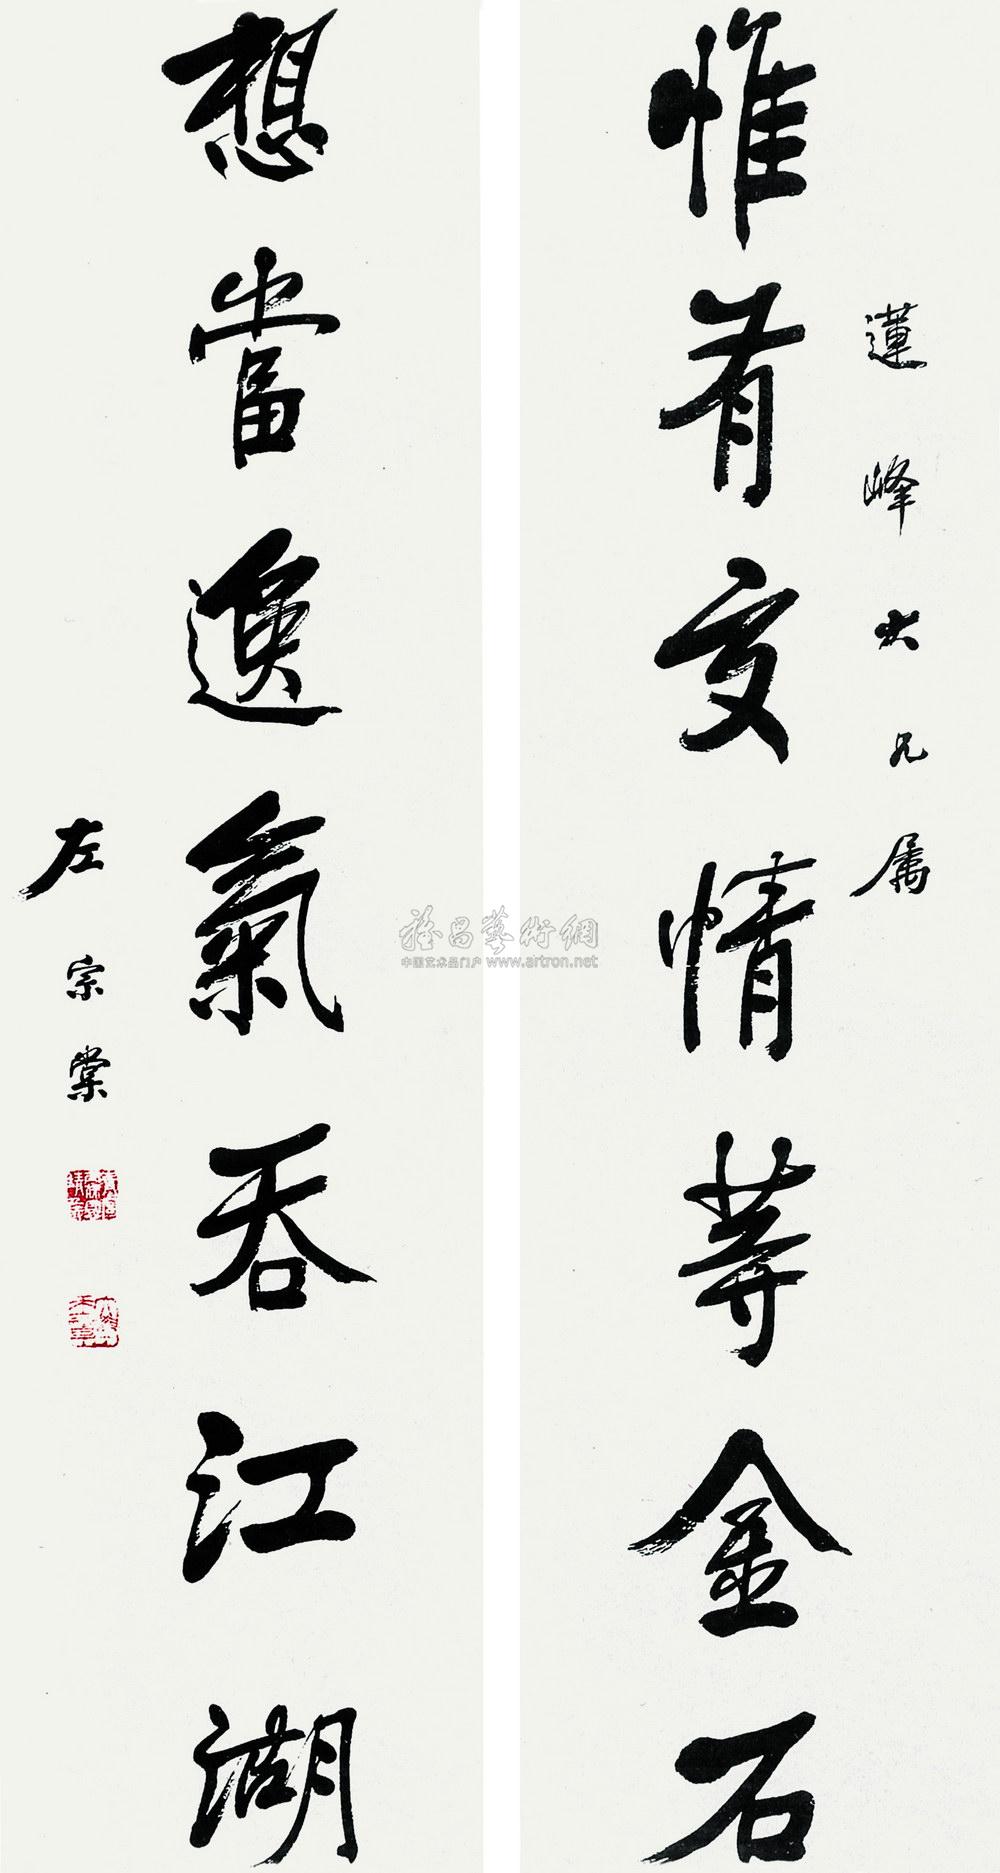 蓮峰大兄属
惟有交情等金石
想當逸氣吞江湖
左宗棠
雅昌藝術網
中国艺术品门户 www.artron.net